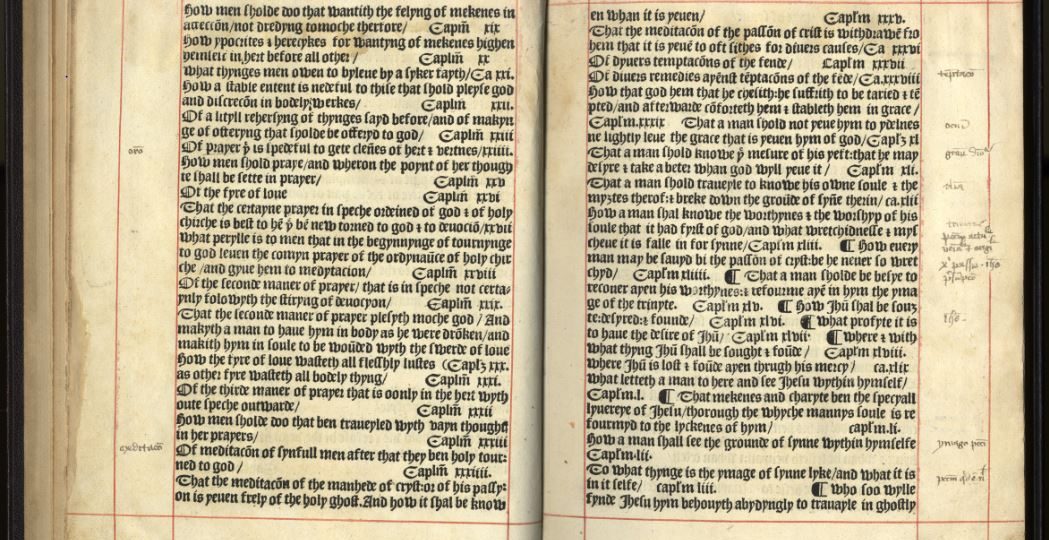 How men sholde doo that wantith the felyng of mekenes in
affeccōn/not dredyng tomoche therfore/ Caplm̄ xix
How ypocrites & heretykes for wantyng of mekenes highen
hemself in hert before all other/ Caplm̄ xx
What thynges men owen to byleue by a syker fayth/Ca xxi.
How a stable entent is nedeful to thise that shold pleyse god
and discrecōn in bodely werkes/ Caplm̄ xxii.
Of a lityll rehersyng of thynges sayd before/and of makyn
ge of offeryng that sholde be offeryd to god/ Caplm̄ xxiii
Of prayer þt is spedeful to gete clēnes of hert & vertues/xxiiii.
How men shold praye/and wheron the poynt of her though
te shall be sette in prayer/ Caplm̄ xxv
Of the fyre of loue Caplm̄ xxvi
That the certayne prayer in speche ordeined of god & of holy
chirche is best to hē þt bē new torned to god & to deuociō/xxvii
What perylle is to men that in the begynnynge of tournynge
to god leuen the comyn prayer of the ordynaūce of holy chir
che/and gyue hem to medytacion/ Caplm̄ xxviii
Of the seconde maner of prayer/ that is in speche not certa-
ynly folowyth the stiryng of deuocyon/ Caplm̄ xxix.
That the seconde maner of prayer plesyth moche god/And
makyth a man to haue hym in body as he were drōken/and
makith hym in soule to be woūded wyth the swerde of loue
How the fyre of loue wasteth all fleshly lustes (Caplꝫ xxx.
as other fyre wasteth all bodely thyng/ Caplm̄ xxxi.
Of the thirde maner of prayer that is oonly in the hert wyth
oute speche outwarde/ Caplm̄ xxxii
How men sholde doo that ben traueyled wyth vayn thoughtꝭ
in her prayers/ Caplm̄ xxxiii
Of meditacōn of synfull men after that they ben holy tour:
ned to god/ Caplm̄ xxxiiii.
That the meditacōn of the manhede of cryst:or of his passy:
on is yeuen frely of the holy ghost.And how it shal be know
en whan it is yeuen/ Caplꝭm xxxv.
That the meditacōn of the passōn of crist is withdrawē fro
hem that it is yeuē to oft sithes for diuers causes/Ca xxxvi
Of dyuers temptacōns of the fende/ Caplꝭm xxxvii
Of diuers remedies ayēnst tēptacōns of the fēde/Ca.xxxviii
How that god hem that he chesith:he suffrith to be taried & tē
pted/and afterwarde cōforteth hem & stableth hem in grace/
Caplꝭm.xxxix That a man shold not yeue hym to ydelnes
ne lightly leue the grace that is yeuen hym of god/Caplꝫ xl
That a man shold knowe þe mesure of his yeft:that he may
desyre & take a beter whan god wyll yeue it/ Caplꝭm xli.
That a man shold traueyle to knowe his owne soule & the
myʒtes therof:& breke down the groūde of syn̄e therin/ ca.xlii
How a man shal knowe the worthynes & the worshyp of his
soule that it had fyrst of god/and what wretchidnesse & mys
cheue it is falle in for synne/Caplꝭm xliii. ¶ How euery
man may be sauyd bi the passōn of cryst:be he neuer so wret
chyd/ Caplꝭm xliiii. ¶ That a man sholde be besye to
recouer ayen his worthynes:& refourme ayē in hym the yma
ge of the trinyte. Caplꝭm xlv. ¶ How Jhū shal be souʒ
te:desyred:& founde/ Caplꝭm xlvi. ¶ What profyte it is
to haue the desire of Jhū/ Caplꝭm xlvii ¶ Where & with
what thyng Jhū shall be sought & foūde/ Caplꝭm xlviii.
Where Jhū is lost & foūde ayen thrugh his mercy/ ca.xlix
What letteth a man to here and see Jhesu wythin hymself/
Caplꝭm.l. ¶ That mekenes and charyte ben the specyall
lyuereye of Jhesu/thorough the whyche mannys soule is re
fourmyd to the lyckenes of hym/ caplꝭm.li.
How a man shall see the grounde of synne wythin hymselfe
Caplꝭm.lii.
To what thynge is the ymage of synne lyke/and what it is
in it selfe/ caplꝭm liii. ¶ Who soo wylle
fynde Jhesu hym behouyth abydyngly to trauayle in ghostly